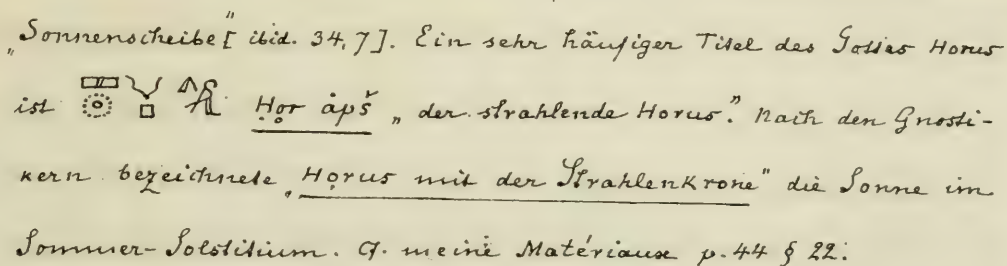 „Sonnenscheibe" [ibid. 34,7]. Ein sehr häufiger Titel des Gottes Horus
ist Họr ȧpš „der strahlende Horus". Nach den Gnosti-
kern bezeichnete „Họrus mit der Strahlenkrone" die Sonne im
Sommer-Solstitium. Cf. meine Matériaux p. 44 § 22.